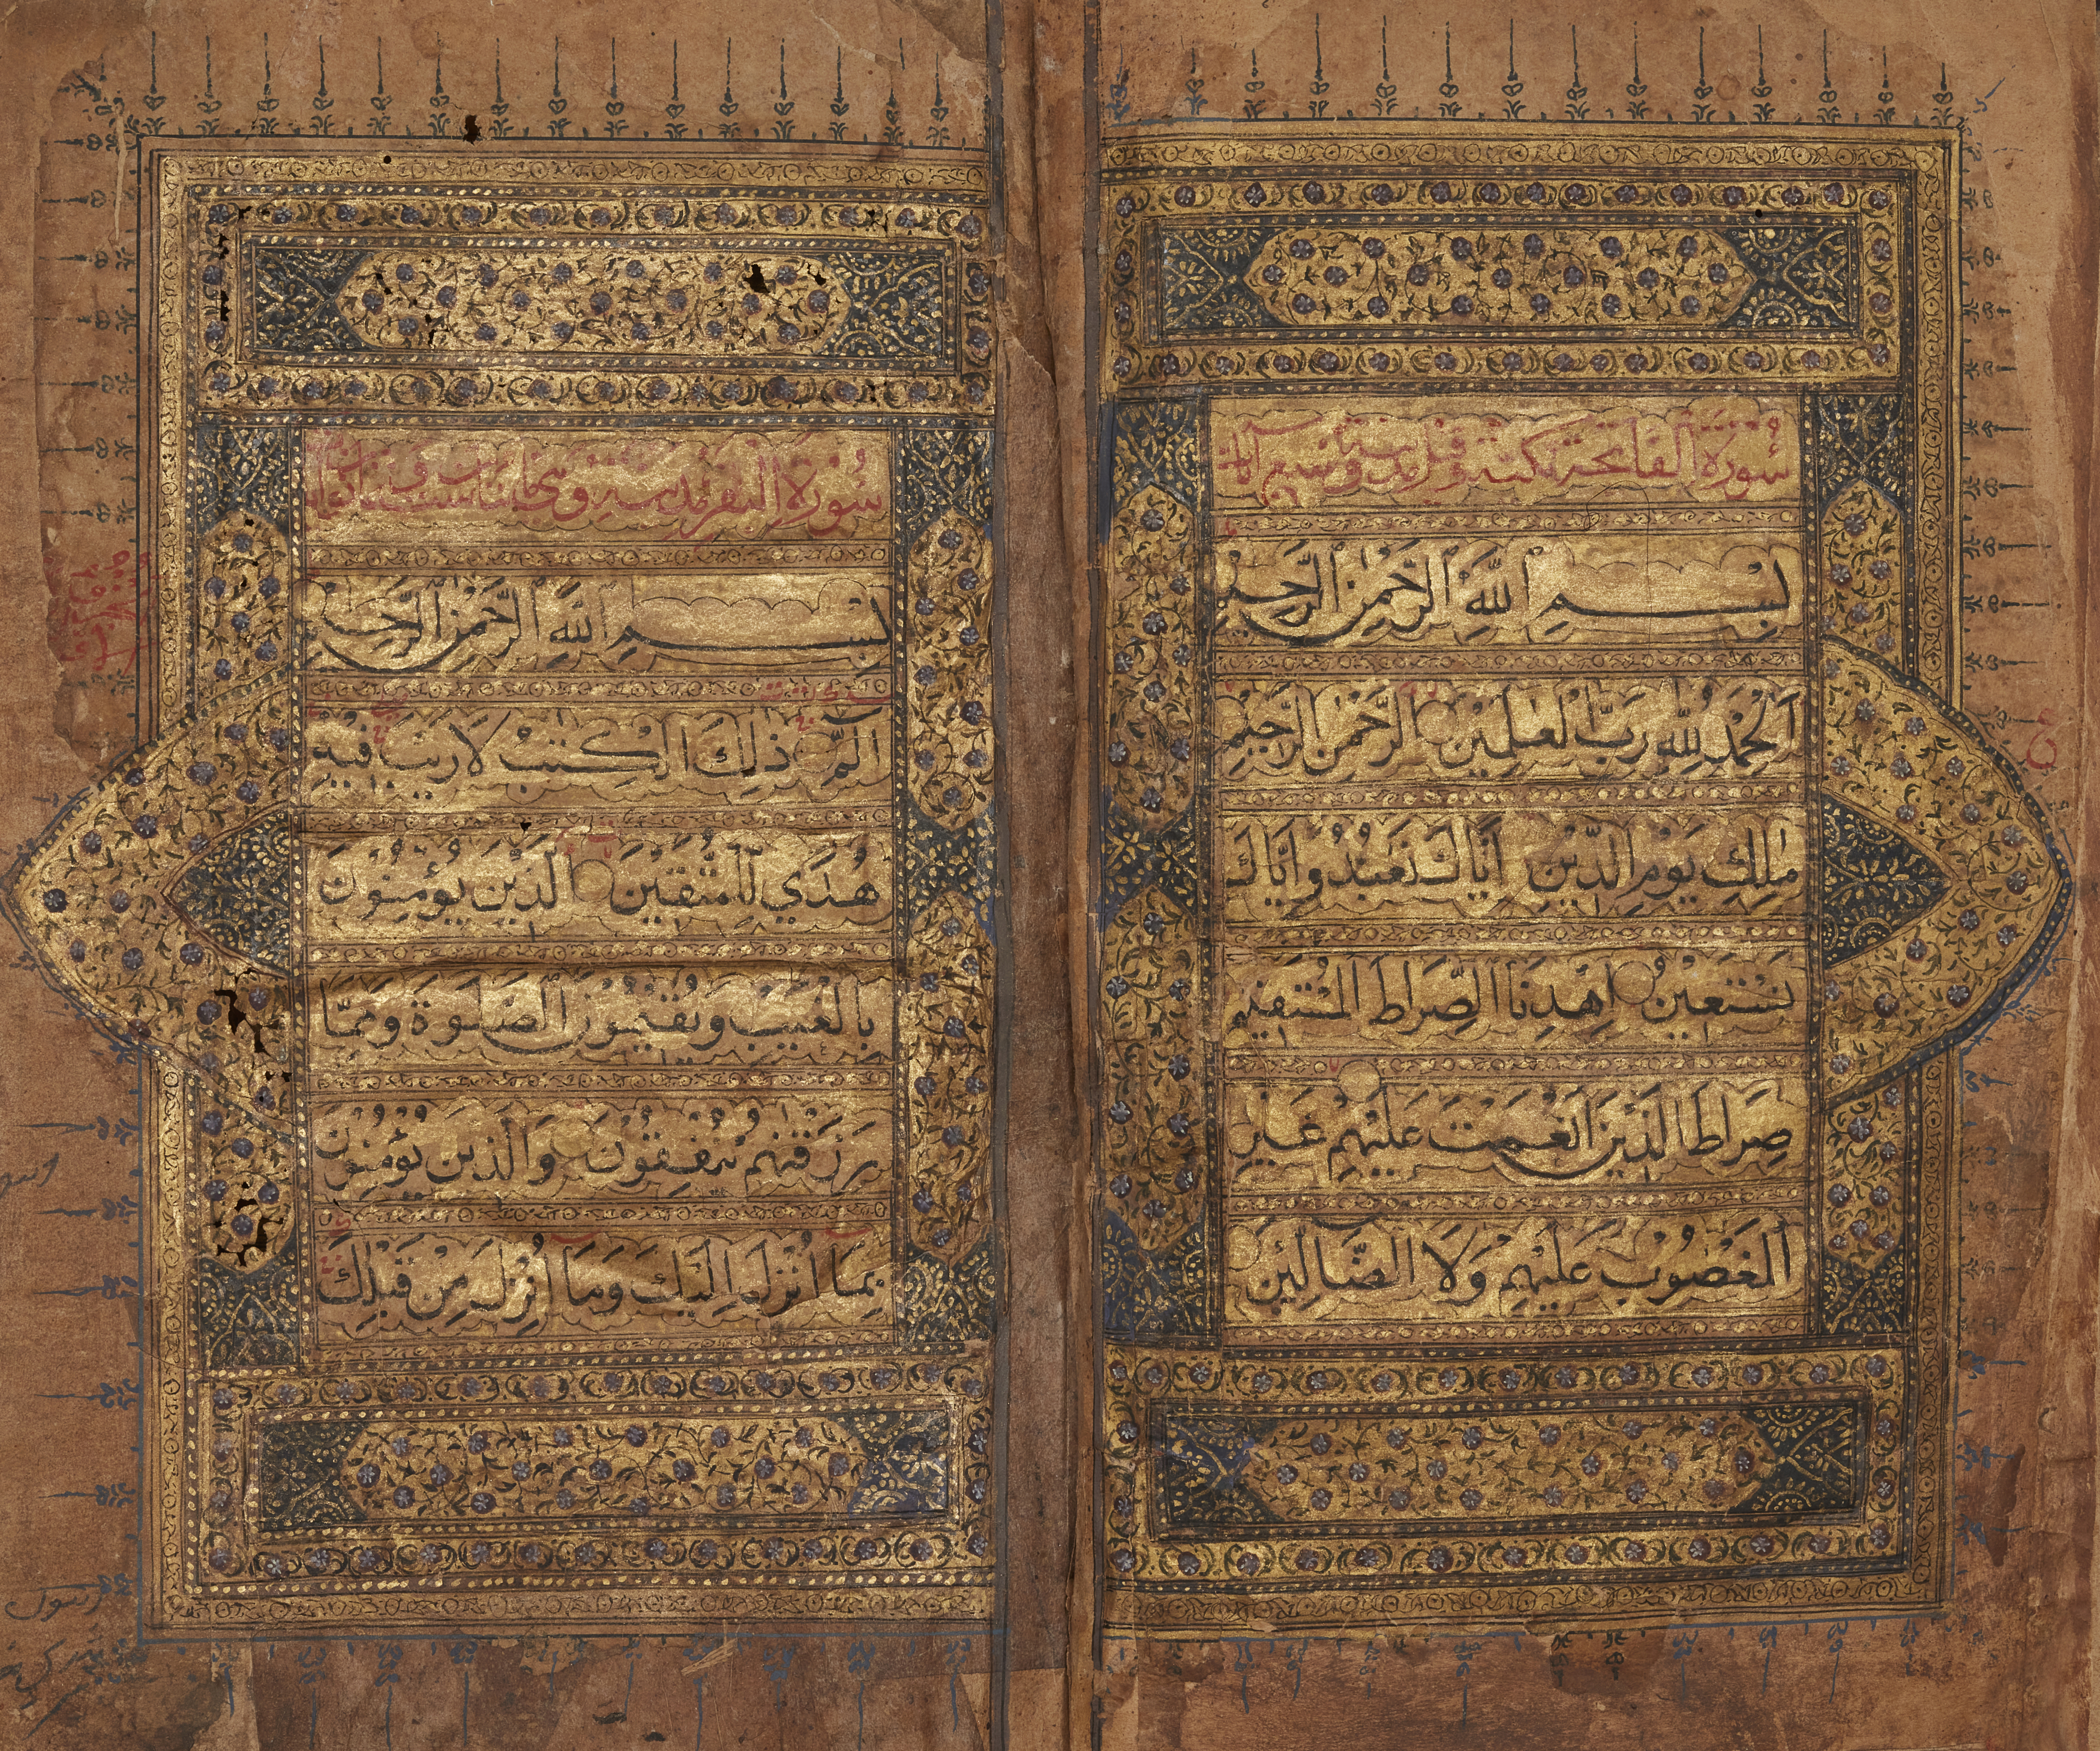 سُورَةُ الفَاتِحَة مكية وقيل مدنية وسبع آيات
بِسْمِ اللَّهِ الرَّحْمٰنِ الرَّحِيمِ
اَلْحَمْدُ لِلّٰهِ رَبِّ الْعٰلَمِينَ الرَّحْمٰنِ الرَّحِيمِ
مٰلِكِ يَوْمِ الدِّينِ اِيَّاكَ نَعْبُدُ وَاِيَّاكَ
نَسْتَعِينُ اِهْدِنَا الصِّرَاطَ الْمُسْتَقِيمَ
صِرَاطَ الَّذِينَ اَنْعَمْتَ عَلَيْهِمْ غَيْرِ
الْمَغْضُوبِ عَلَيْهِمْ وَلَا الضَّالِّينَ
سُورَةُ البقر مدنية وهي
بِسْمِ اللَّهِ الرَّحْمٰنِ الرَّحِيمِ
الٓمّٓ ذٰلِكَ الْكِتٰبُ لَا رَيْبَ فِيهِ
هُدًي لِّلْمُتَّقِينَ الَّذِينَ يُؤْمِنُونَ
بِالْغَيْبِ وَيُقِيمُونَ الصَّلٰوةَ وَمِمَّا
رَزَقْنٰهُمْ يُنْفِقُونَ وَالَّذِينَ يُؤْمِنُونَ
بِمَا اُنْزِلَ اِلَيْكَ وَمَا اُنْزِلَ مِنْ قَبْلِكَ
رسول